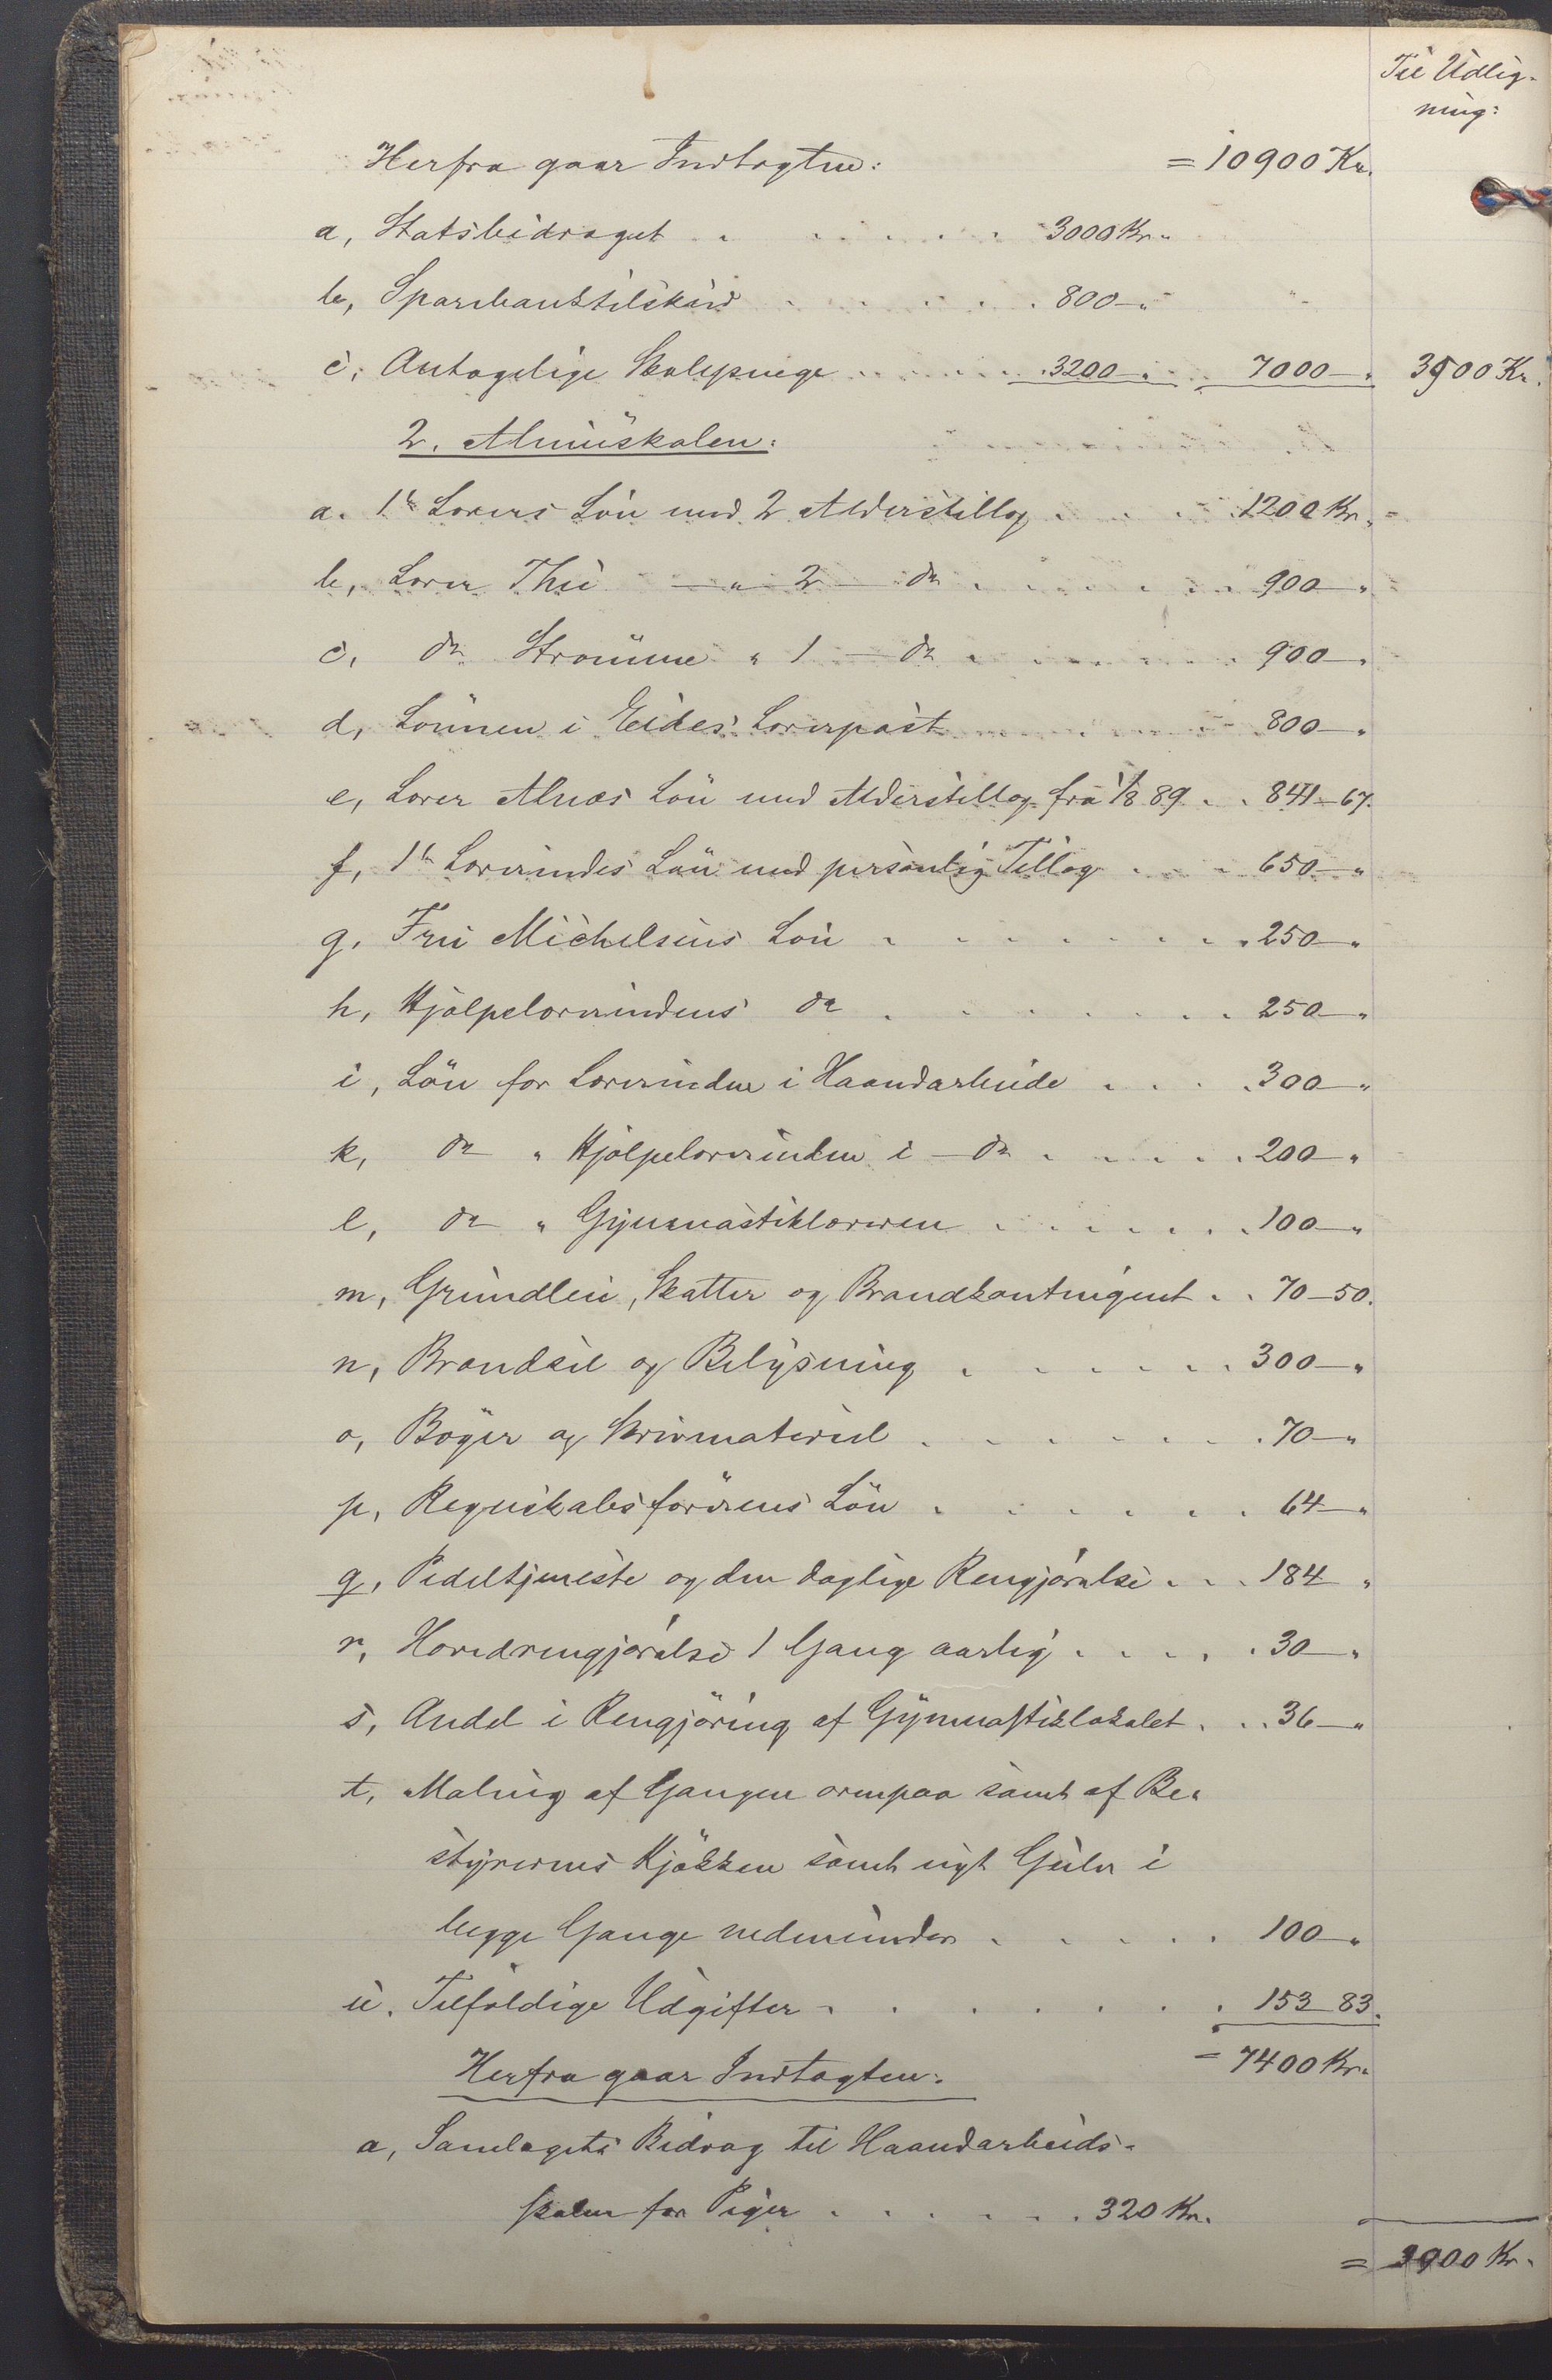 Til Udlig-
ning:
Herfra gaar Indtægten: = 10900 Kr.
a, Statsbidraget . . . . . 3000 Kr. "
b, Sparebanktilskud . . . . . 800 — "
c, Antagelige Skolepenge . . . . . 3200 — " 7000 — " 3900 Kr.
2. Almuskolen:
a. 1ste Lærers Løn med 2 Alderstillæg . . . 1200 Kr. "
b, Lærer Thu — " 2 — do . . . . . 900 — "
c, do Strømme " 1 — do . . . . . 900 — "
d, Lønnen i Eides Lærerpost . . . . . 800 — "
e, Lærer Alnæs Løn med Alderstillæg fra 1/8 89 . . 841 — 67.
f, 1ste Lærerindes Løn med personlig Tillæg . . . 650 — "
g. Fru Michelsens Løn . . . . . 250 — "
h, Hjælpelærerindens do . . . . . 250 — "
i, Løn for Lærerinden i Haandarbeide . . . 300 — "
k, do " Hjælpelærerinden i — do . . . . 200 — "
l, do " Gymnastiklæreren . . . . . 100 — "
m, Grundleie, Skatter og Brandkontingent . . 70 — 50.
n, Brændsel og Belysning . . . . . 300 — "
o, Bøger og Skrivmateriel . . . . . 70 — "
p, Regnskabsførerens Løn . . . . . 64 — "
q, Pedeltjeneste og den daglige Rengjørelse . . . 184 "
r, Hovedrengjørelse 1 Gang aarlig . . . . 30 — "
s, Andel i Rengjøring af Gymnastiklokalet . . . 36 — "
t, Maling af Gangen ovenpaa samt af Be-
styrerens Kjøkken samt nyt Gulv i
begge Gange nedenunder . . . . . 100 — "
u. Tilfældige Udgifter . . . . . 153 83.
Herfra gaar Indtægten: = 7400 Kr.
a, Samlagets Bidrag til Haandarbeids-
skolen for Piger . . . . . 320 Kr.
= 3900 Kr.